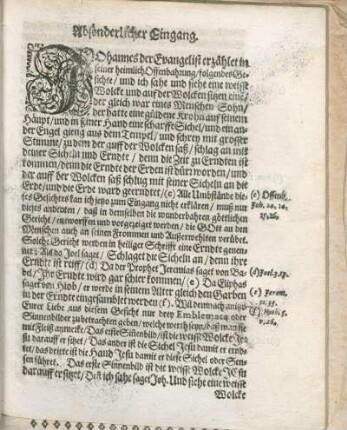 Absönderlicher Eingang.
JOhannes der Evangelist erzählet in
seiner heimlich Offenbahrung / folgendes Ge-
sichte / und ich sahe und siehe eine weisse
Wolcke und auf der Wolcken sitzen eine /
der gleich war eines Menschen Sohn /
der hatte eine güldene Krohn auff seinem
Häupt / und in seiner Hand eine scharffe Sichel / und ein an-
der Engel gieng aus dem Tempel / und schrey mit grosser
Stimme / zu dem der auff der Wolcken saß / schlag an mit
deiner Sicheln und Erndte / denn die Zeit zu Erndten ist
kommen / denn die Erndte der Erden ist dürr worden / und
der auff der Wolcken saß schlug mit seiner Sicheln an die
Erde / und die Erde ward geerndtet / (c) Alle Umbstände die-
ses Gesichtes kan ich jetzo zum Eingang nicht erklären / muß nur
dieses andeuten / daß in demselben die wunderbahren göttlichen
Gericht / entworffen und vorgezeiget werden / die GOtt an den
Menschen auch an seinen Frommen und Außerwehlten verübet.
Solche Gericht werden in heiliger Schrifft eine Erndte genen-
net: Als zu Joel saget / Schlaget die Sicheln an / denn ihre
Erndte ist reiff / (d) Da der Prophet Jeremias saget von Ba-
bel / Ihre Erndte werd gar schier kommen / (e) Da Eliphas
saget von Hiob / er werde in seinem Alter gleich den Garben
in der Erndte eingesamblet werden (f).
Eurer Liebe aus diesem Gesicht nur drey Emblemata oder
Sinnenbilder zu betrachten geben / welche werth seyn / daß man sie
mit Fleiß anmercke / Das erste Sinnenbild / ist die weisse Wolcke Je-
su darauff er sitzet / Das ander ist die Sichel Jesu damit er erndt-
tet / das dritte ist die Hand Jesu damit er diese Sichel oder Sen-
sen führet. Das erste Sinnenbild ist die weisse Wolcke JEsu
darauff er sitzet / Denn ich sahe saget Joh. Und siehe eine weisse
Wolcke
(c) Offenb.
(d) Joel. 3. 13.
(e) Jerem.